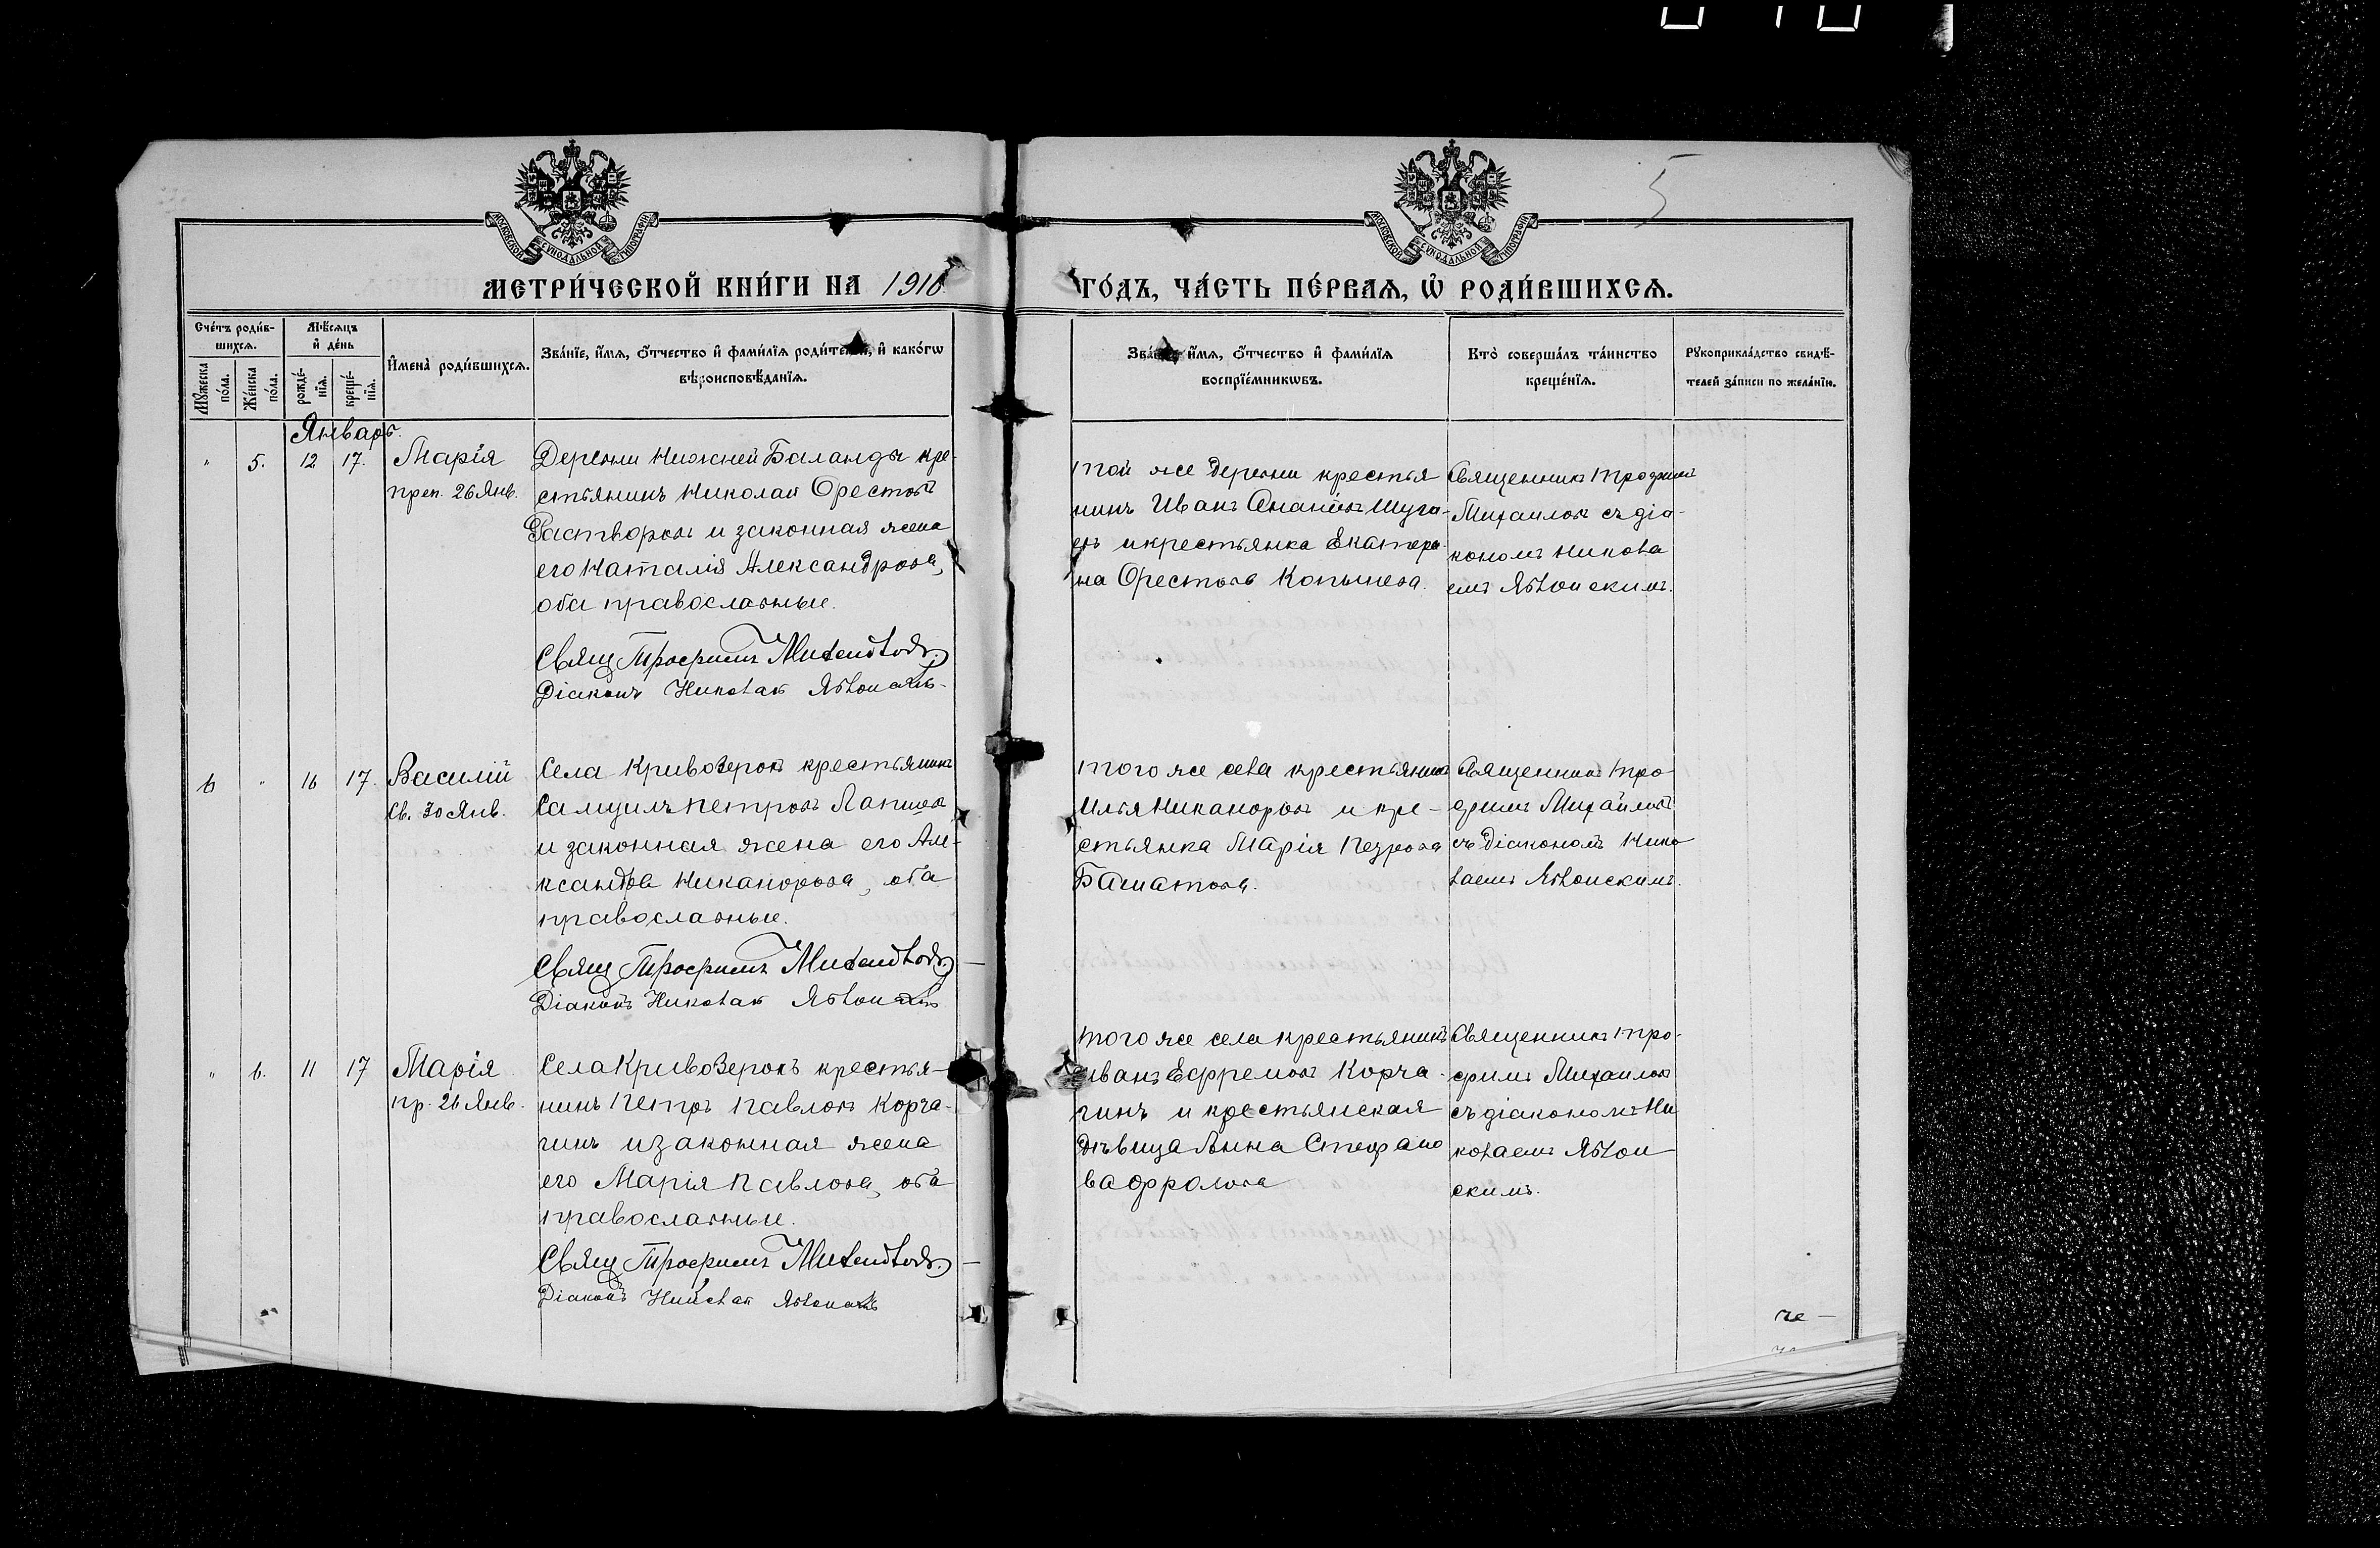 5
МОСКОВСКОЙ СѴНОДАЛЬНОЙ ТИПОГРАФІИ
МОСКОВСКОЙ СѴНОДАЛЬНОЙ ТИПОГРАФІИ
МЕТРИ́ЧЕСКОЙ КНИ́ГИ НА 1910
ГО́ДЪ, ЧА́СТЬ ПЕ́РВАѦ, Ѽ РОДИ́ВШИХСѦ.
Сче́тъ роди́в-
шихсѧ.
Мꙋ́жеска
по́ла.
Же́нска
по́ла.
Мѣ́сѧцъ
и҆ де́нь
рожде́-
нїѧ.
креще́-
нїѧ.
И҆мена̀ роди́вшихсѧ.
Зва́нїе, и҆́мѧ, ѻ҆́тчество и҆ фами́лїѧ роди́телей, и҆ како́гѡ
вѣроисповѣ́данїѧ.
Зва́нїе, и҆́мѧ, ѻ҆́тчество и҆ фами́лїѧ
воспрїе́мникѡвъ.
Кто̀ соверша́лъ та́инство
креще́нїѧ.
Рꙋкоприкла́дство свидѣ́-
телей за́писи по жела́нїю.
Январь.
" 5. 12 17.
Марія
преп. 26 Янв.
Деревни Нижней Баланды кре-
стьянинъ Николай Орестовъ
Растворовъ и законная жена
его Наталія Александрова,
оба православные.
Свящ Трофимъ Михайловъ.
Діаконъ Николай
той же деревни крестья
нинъ Иванъ Ананіевъ
и крестьянка Екатери-
на Орестова
Священникъ Трофимъ
Михаиловъ съ діа-
кономъ Никола
емъ
6 " 16 17.
Василій
Св. 30 Янв.
Села Кривоозерокъ крестьянинъ
Самуилъ Петровъ Лапшовъ
и законная жена его Але-
ксандра Никанорова, оба
православные.
Свящ Трофимъ Михайловъ.
Діаконъ Николай
того же села крестьянинъ
Илья Никаноровъ и кре-
стьянка Марія Петрова
Башатова.
Священникъ Тро-
фимъ Михайловъ
съ діакономъ Нико
лаемъ
" 6. 11 17
Марія
пр. 26 Янв.
Села Кривоозерокъ крестья-
нинъ Петръ Павловъ Корча-
гинъ и законная жена
его Марія Павлова, оба
православные.
Свящ Трофимъ Михайловъ.
Діаконъ Николай
того же села крестьянинъ
Иванъ Ефремовъ Корча-
гинъ и крестьянская
дѣвица Анна Стефано
ва Фролова
Священникъ Тро-
фимъ Михаиловъ
съ діакономъ Ни
колаемъ
скимъ.
че-